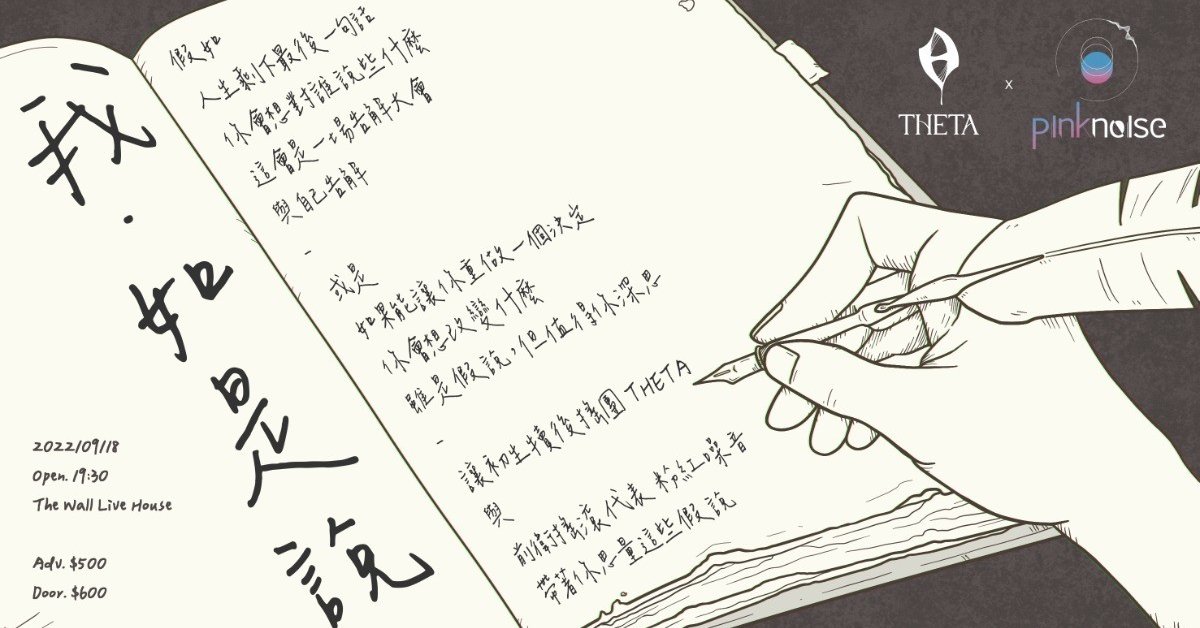 我・如是說
2022/09/18
Open. 19:30
The Wall Live House
Adv. $500
Door. $600
假如
人生剩下最後一句話
你會想對誰說些什麼
這會是一場告解大會
與自己告解
-
或是
如果能讓你重做一個決定
你會想改變什麼
雖是假說，但值得你深思
-
讓初生犢後搖團 THETA
與
前衛搖滾代表 粉紅噪音
帶著你思量這些假說
THETA
x
pinknoise